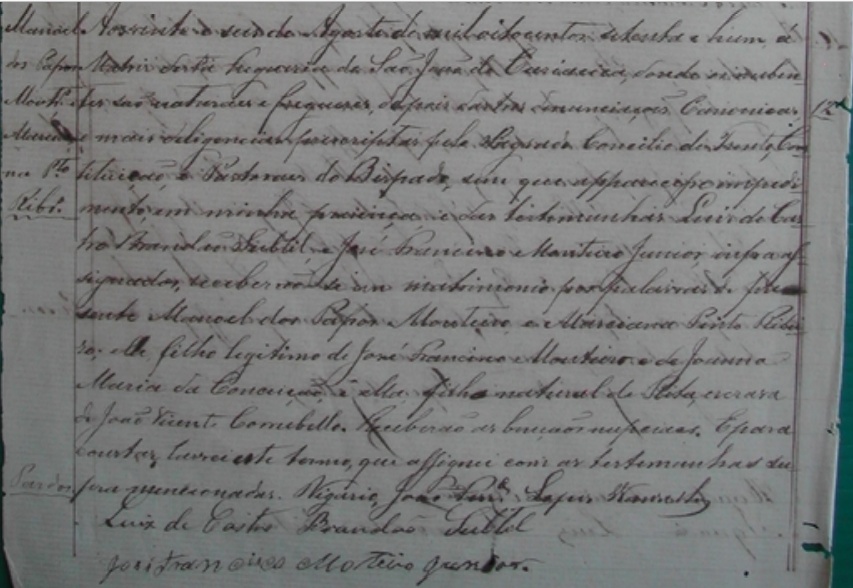 Manoel Aos vinte e seis de Agosto de mil oitocentos setenta e hum, á
dos Passos Matriz desta freguesia de São João de Cariacica, donde os nuben
Montr.º tes são naturaes e freguezes, depois das tres denunciações Canonicas, 12
e mais diligencias prescriptas pelo Sagrado Concilio de Trento, Con
na Pto stituição e Pastoraes do Bispado, sem que apparecesse impedi
Ribr.º mento em minha presença e das testemunhas Luiz de Cas
tro Brandão Subtil, e José Francisco Monteiro Junior infra as
signados, receberão-se em matrimonio por palavras de pre
sente Manoel dos Passos Monteiro, e Marciana Pinto Ribei
ro; elle filho legitimo de José Francisco Monteiro e de Joanna
Maria da Conceição e ella filha natural de Rita, escrava
de João Vicente. Receberão as bençãos nupciaes. E para
constar, lavrei este termo, que assignei com as testemunhas su
Pardos pra mencionadas. Vigario, João Lopes
Luiz de Castro Brandão Subtil
José Francisco Moteiro Junior.